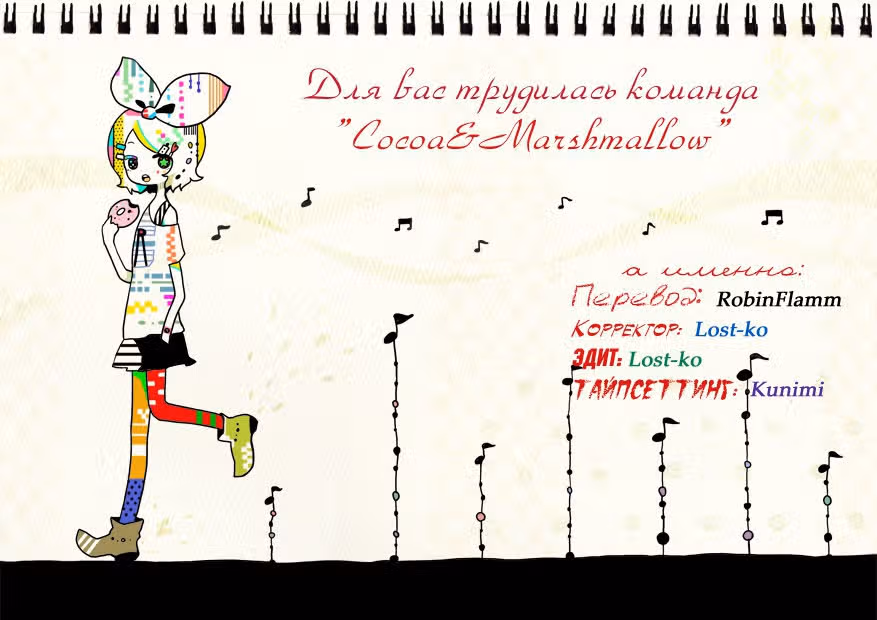 Для вас трудилась команда
"Cocoa&Marshmallow"
а именно:
Перевод: RobinFlamm
Корректор: Lost-ko
Эдит: Lost-ko
Тайпсеттинг: Kunimi